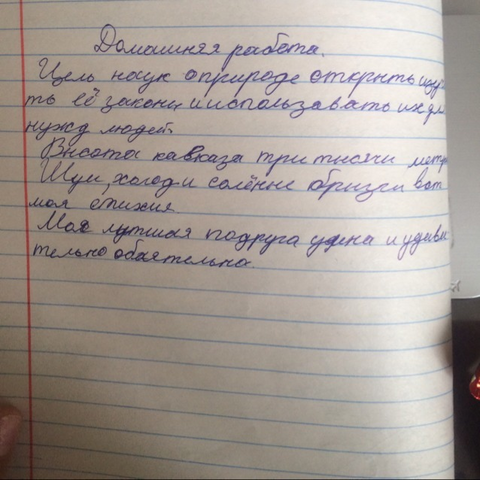 Домашняя работа.
Цель наук о природе открыть изу
ть её законы и использовать их дл
нужд людей.
Высота кавказа три тысячи метр
Шум, холод и солёные брызги вот
моя стихия.
Моя лутшая подруга умна и удиви
тельно обаятельна.